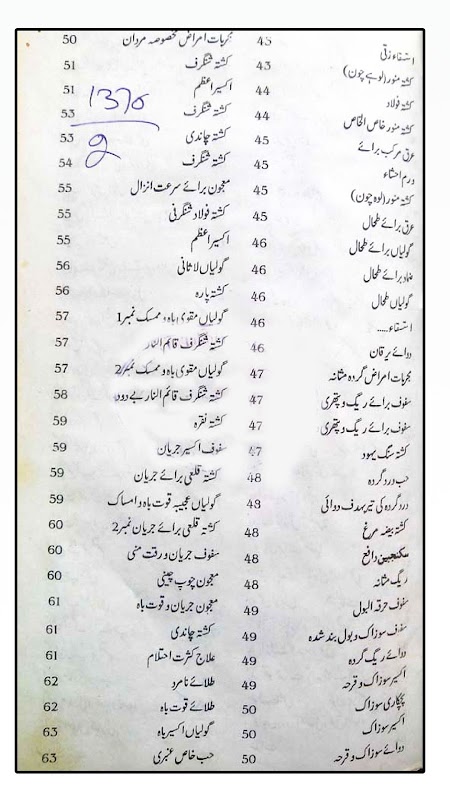 استسقاء زقی 43
کشتہ منور (لوہے چون) 43
کشتہ فولاد 44
کشتہ منور خاص الخاص 44
عرق مرکب برائے 45
ورم احشاء 45
کشتہ منور (لوہ چون) 45
عرق برائے طحال 45
گولیاں برائے طحال 46
ضماد برائے طحال 46
گولیاں طحال 46
استسقاء ..... 46
دوائے یرقان 46
مجربات امراض گردہ مثانہ 47
سفوف برائے ریگ و پتھری 47
سفوف برائے ریگ و پتھری 47
کشتہ سنگ یہود 47
حب درد گردہ 48
درد گردہ کی تیر بہدف دوائی 48
کشتہ بیضہ مرغ 48
سکنجبین دافع 48
ریگ مثانہ 48
سفوف حرقۃ البول 49
سفوف سوزاک و بول بند شدہ 49
دوائے ریگ گردہ 49
اکسیر سوزاک و قرحہ 49
پچکاری سوزاک 50
اکسیر سوزاک 50
دوائے سوزاک و قرحہ 50
مجربات امراض مخصوصہ مردان 50
کشتہ شنگرف 51
اکسیر اعظم 51
کشتہ شنگرف 53
کشتہ چاندی 53
کشتہ شنگرف 54
معجون برائے سرعت انزال 55
کشتہ فولاد شنگرفی 55
اکسیر اعظم 55
گولیاں لاثانی 56
کشتہ پارہ 56
گولیاں مقوی باہ و ممسک نمبر 1 57
کشتہ شنگرف قائم النار 57
گولیاں مقوی باہ و ممسک نمبر 2 57
کشتہ شنگرف قائم النار بے دود 58
کشتہ نقرہ 59
سفوف اکسیر جریان 59
کشتہ قلعی برائے جریان 59
گولیاں عجیبہ قوت باہ و امساک 59
کشتہ قلعی برائے جریان نمبر 2 60
سفوف جریان و رقت منی 60
معجون چوب چینی 60
معجون جریان و قوت باہ 61
کشتہ چاندی 61
علاج کثرت احتلام 61
طلائے نامرد 62
طلائے قوت باہ 62
گولیاں اکسیر باہ 63
حب خاص عنبری 63
1370
2